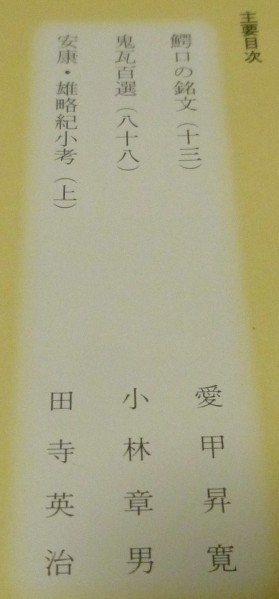 主要目次
鰐口の銘文（十三） 愛甲昇寛
鬼瓦百選（八十八） 小林章男
安康・雄略紀小考（上） 田寺英治